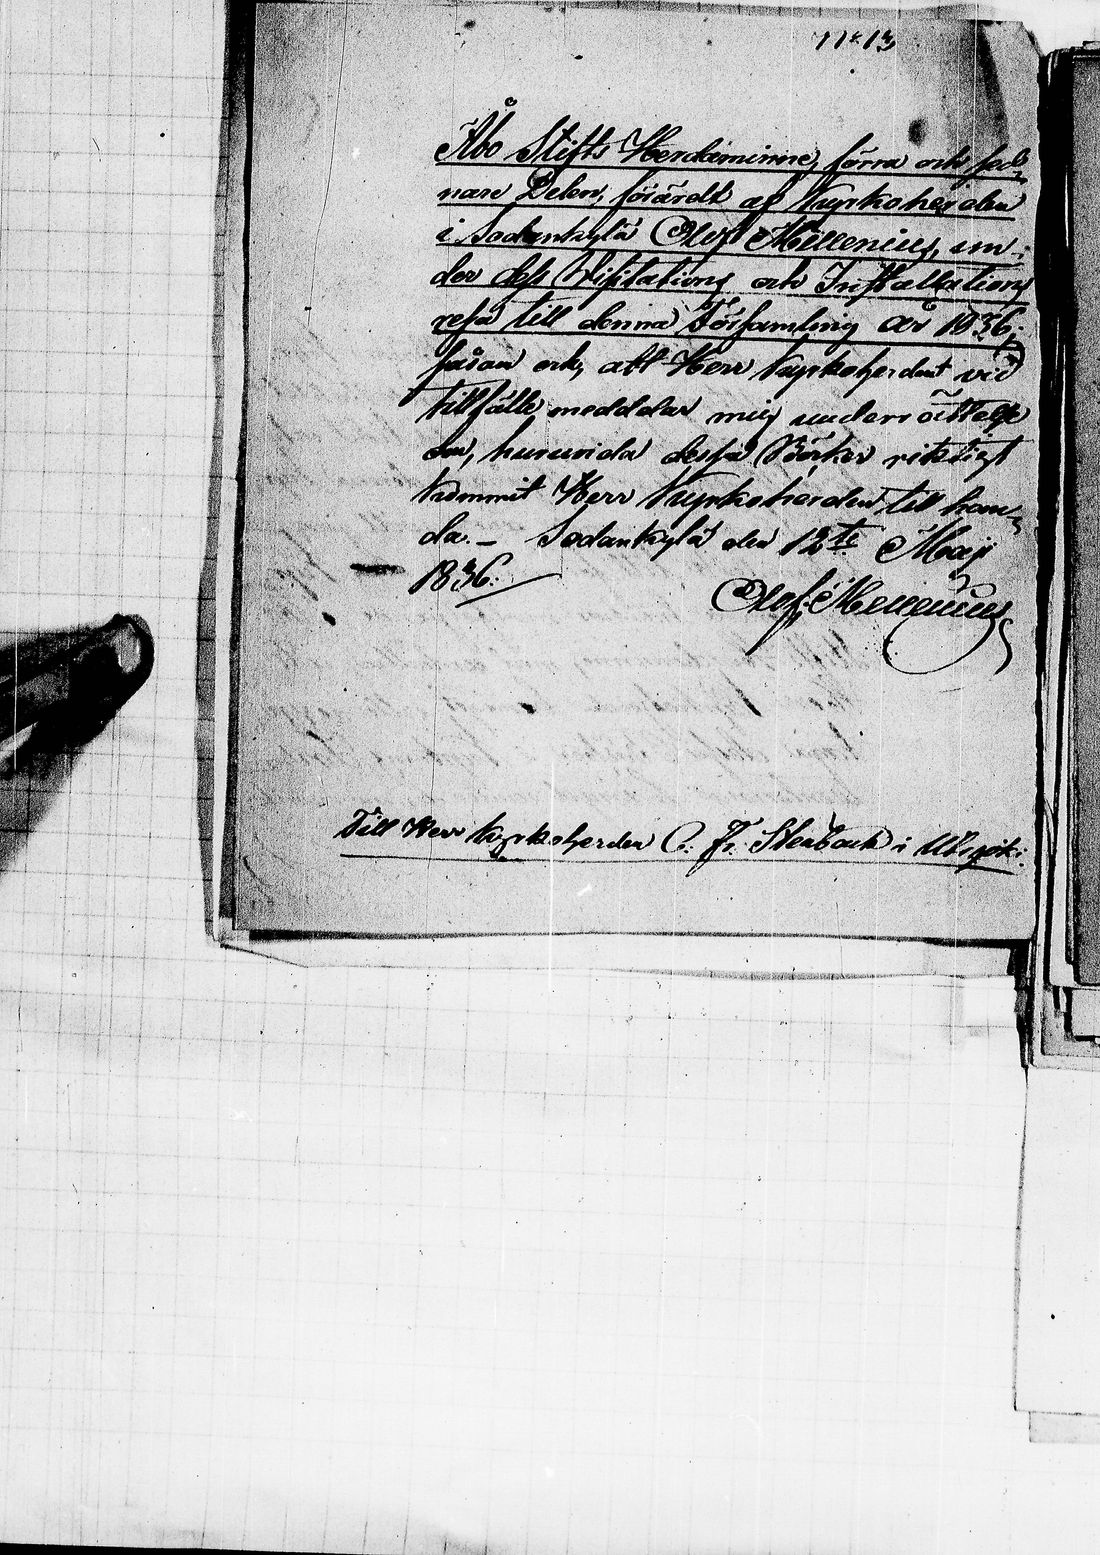 N:o 13
Åbo Stifts Herdaminne, förra och sed-
nare Delen, förärdt af Kyrkoherden
i Sodankylä Olof Mellenius, un-
der dess Visitations och Installations
resa till denna Församling år 1836;
såsom ock, att Herr Kyrkoherden vid
tillfälle meddelar mig underrättelse
om, huruvida dessa Böcker riktigt
kommit Herr Kyrkoherden till han-
da. – Sodankylä den 12te Maji
1836.
Olof Mellenius
Till Herr Kyrkoherden C. Fr. Stenbäck i Utsjoki.